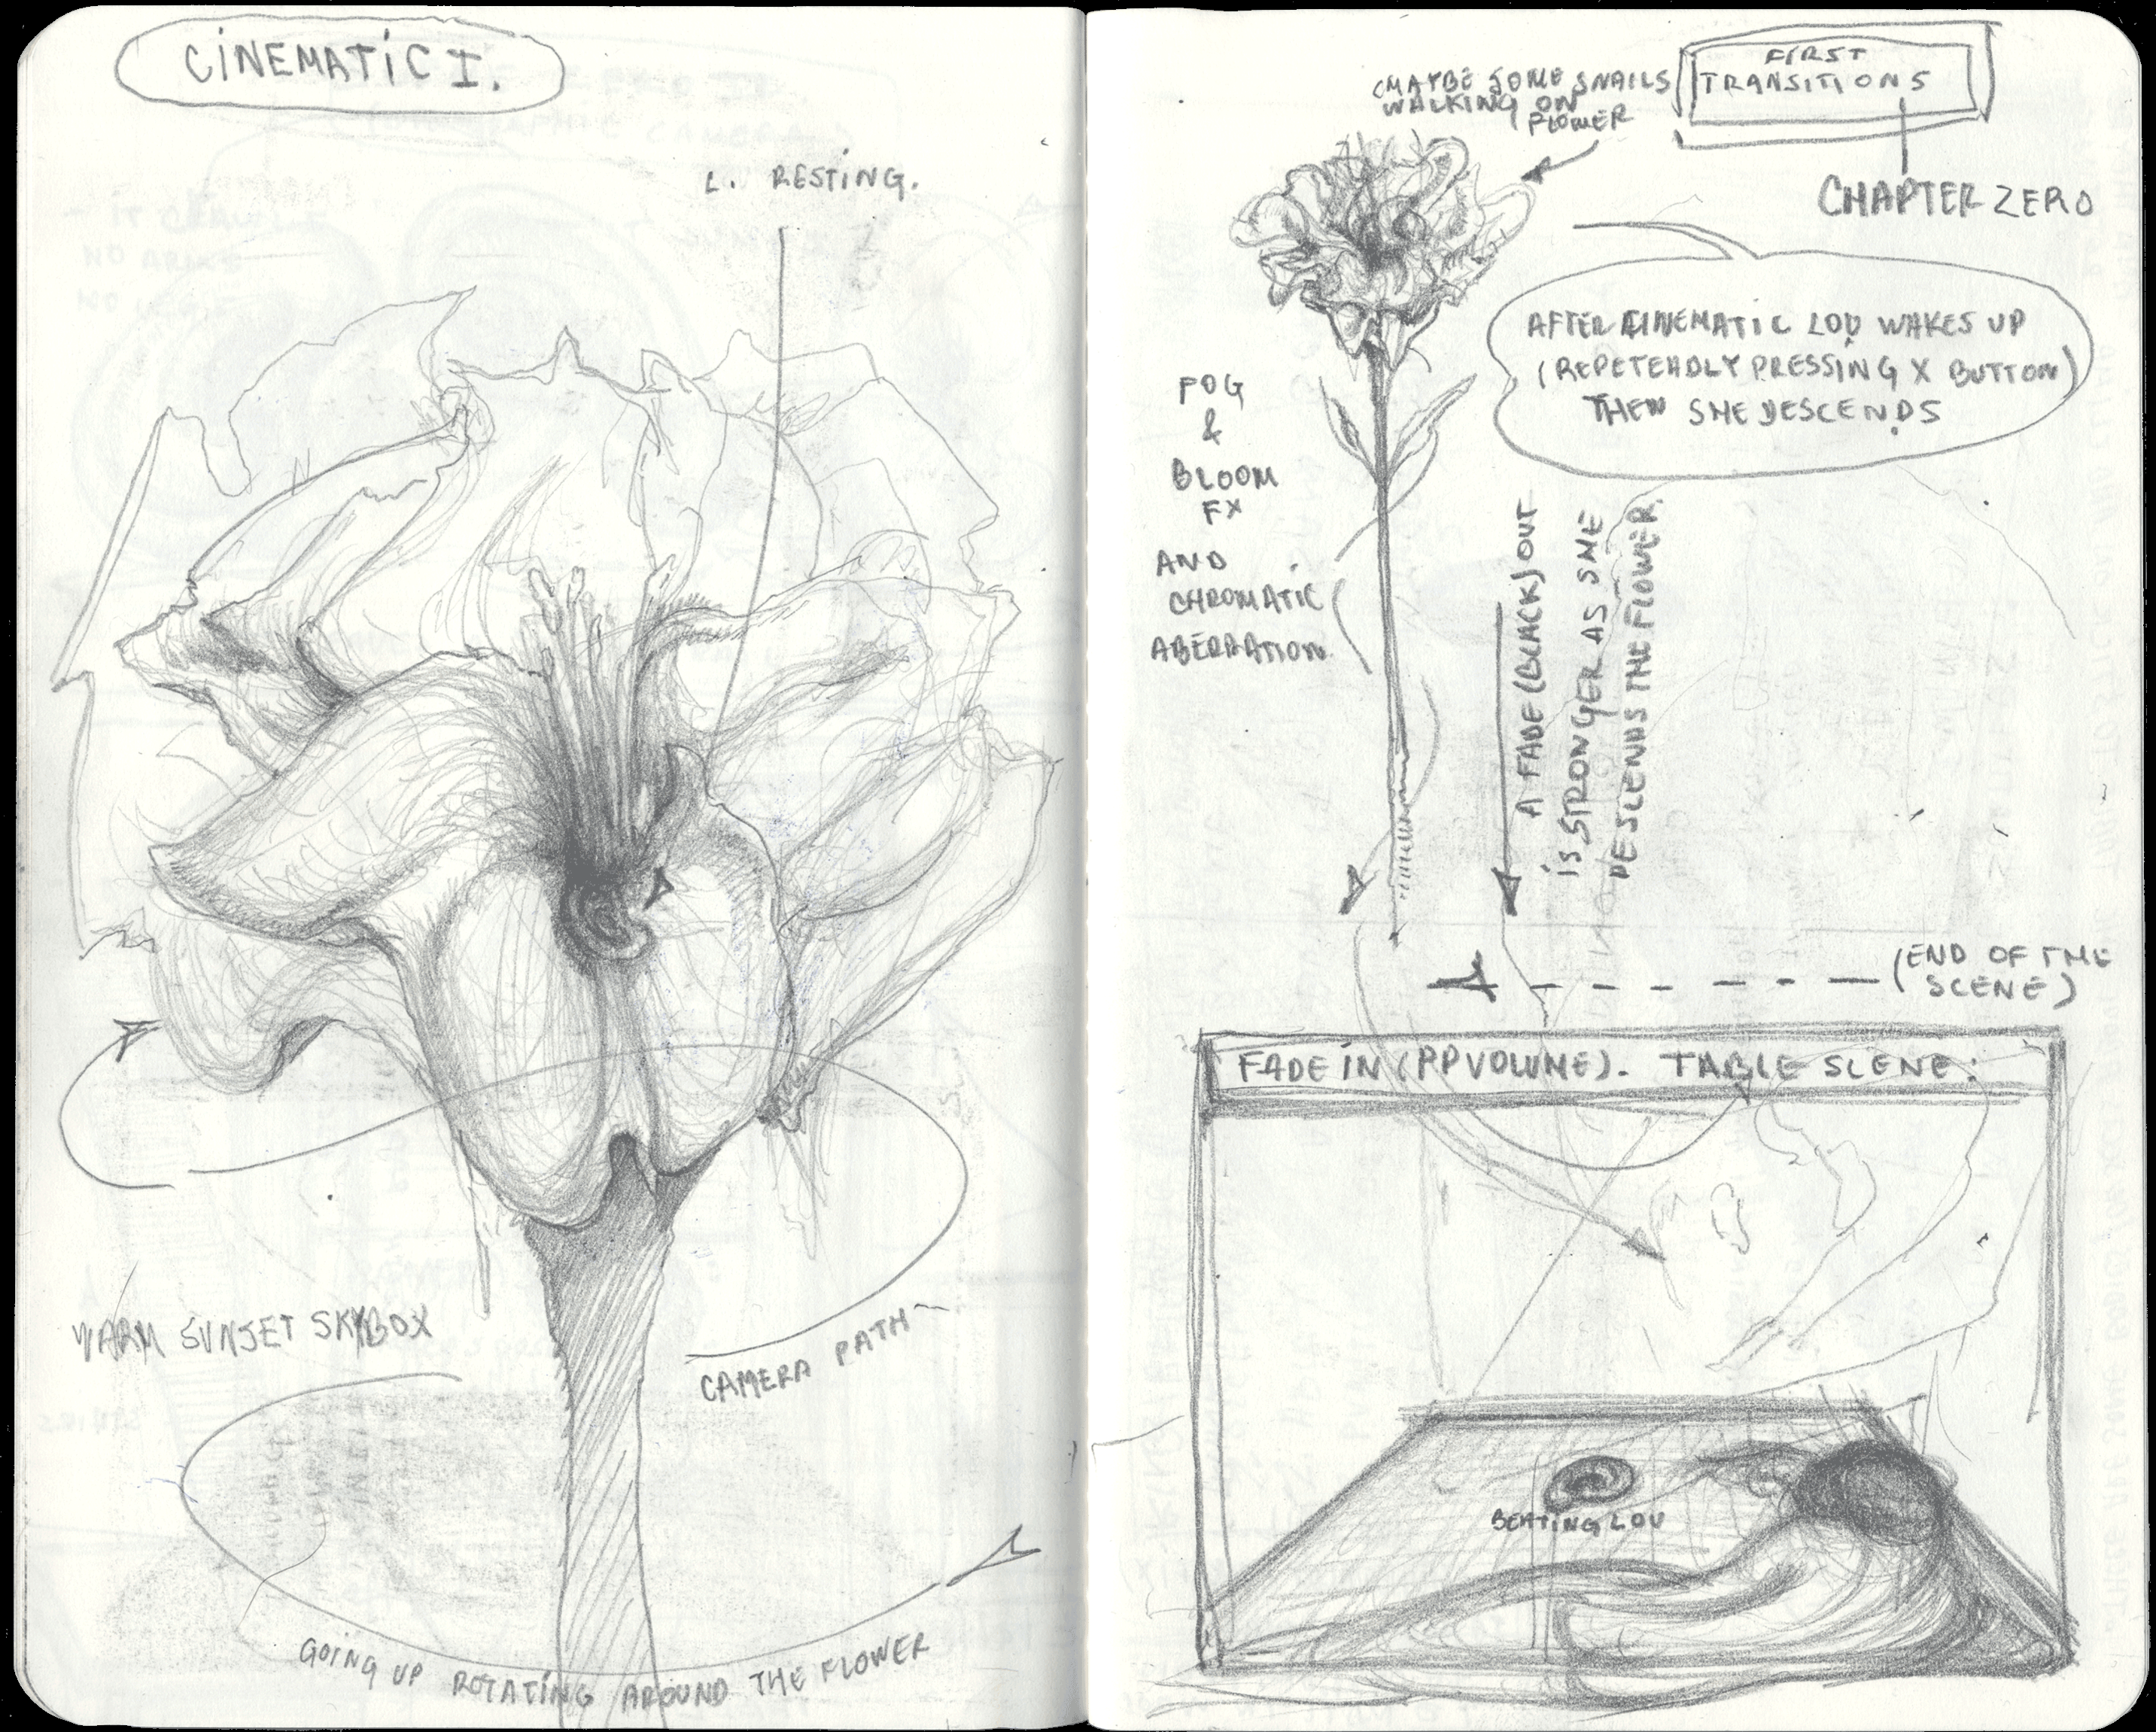 CINEMATIC I.
L. RESTING.
WARM SUNSET SKYBOX
CAMERA PATH
GOING UP ROTATING AROUND THE FLOWER
(MAYBE SOME SNAILS
WALKING ON
FLOWER
FIRST
TRANSITIONS
CHAPTER ZERO
AFTER CINEMATIC LOU WAKES UP
(REPETEADLY PRESSING X BUTTON)
THEN SHE DESCENDS
FOG
&
BLOOM
FX
AND
CHROMATIC
ABERRATION
A FADE (BLACK) OUT
IS STRONGER AS SHE
DESCENDS THE FLOWER
(END OF THE
SCENE)
FADE IN (PP VOLUME). TABLE SCENE:
BEATING LOU